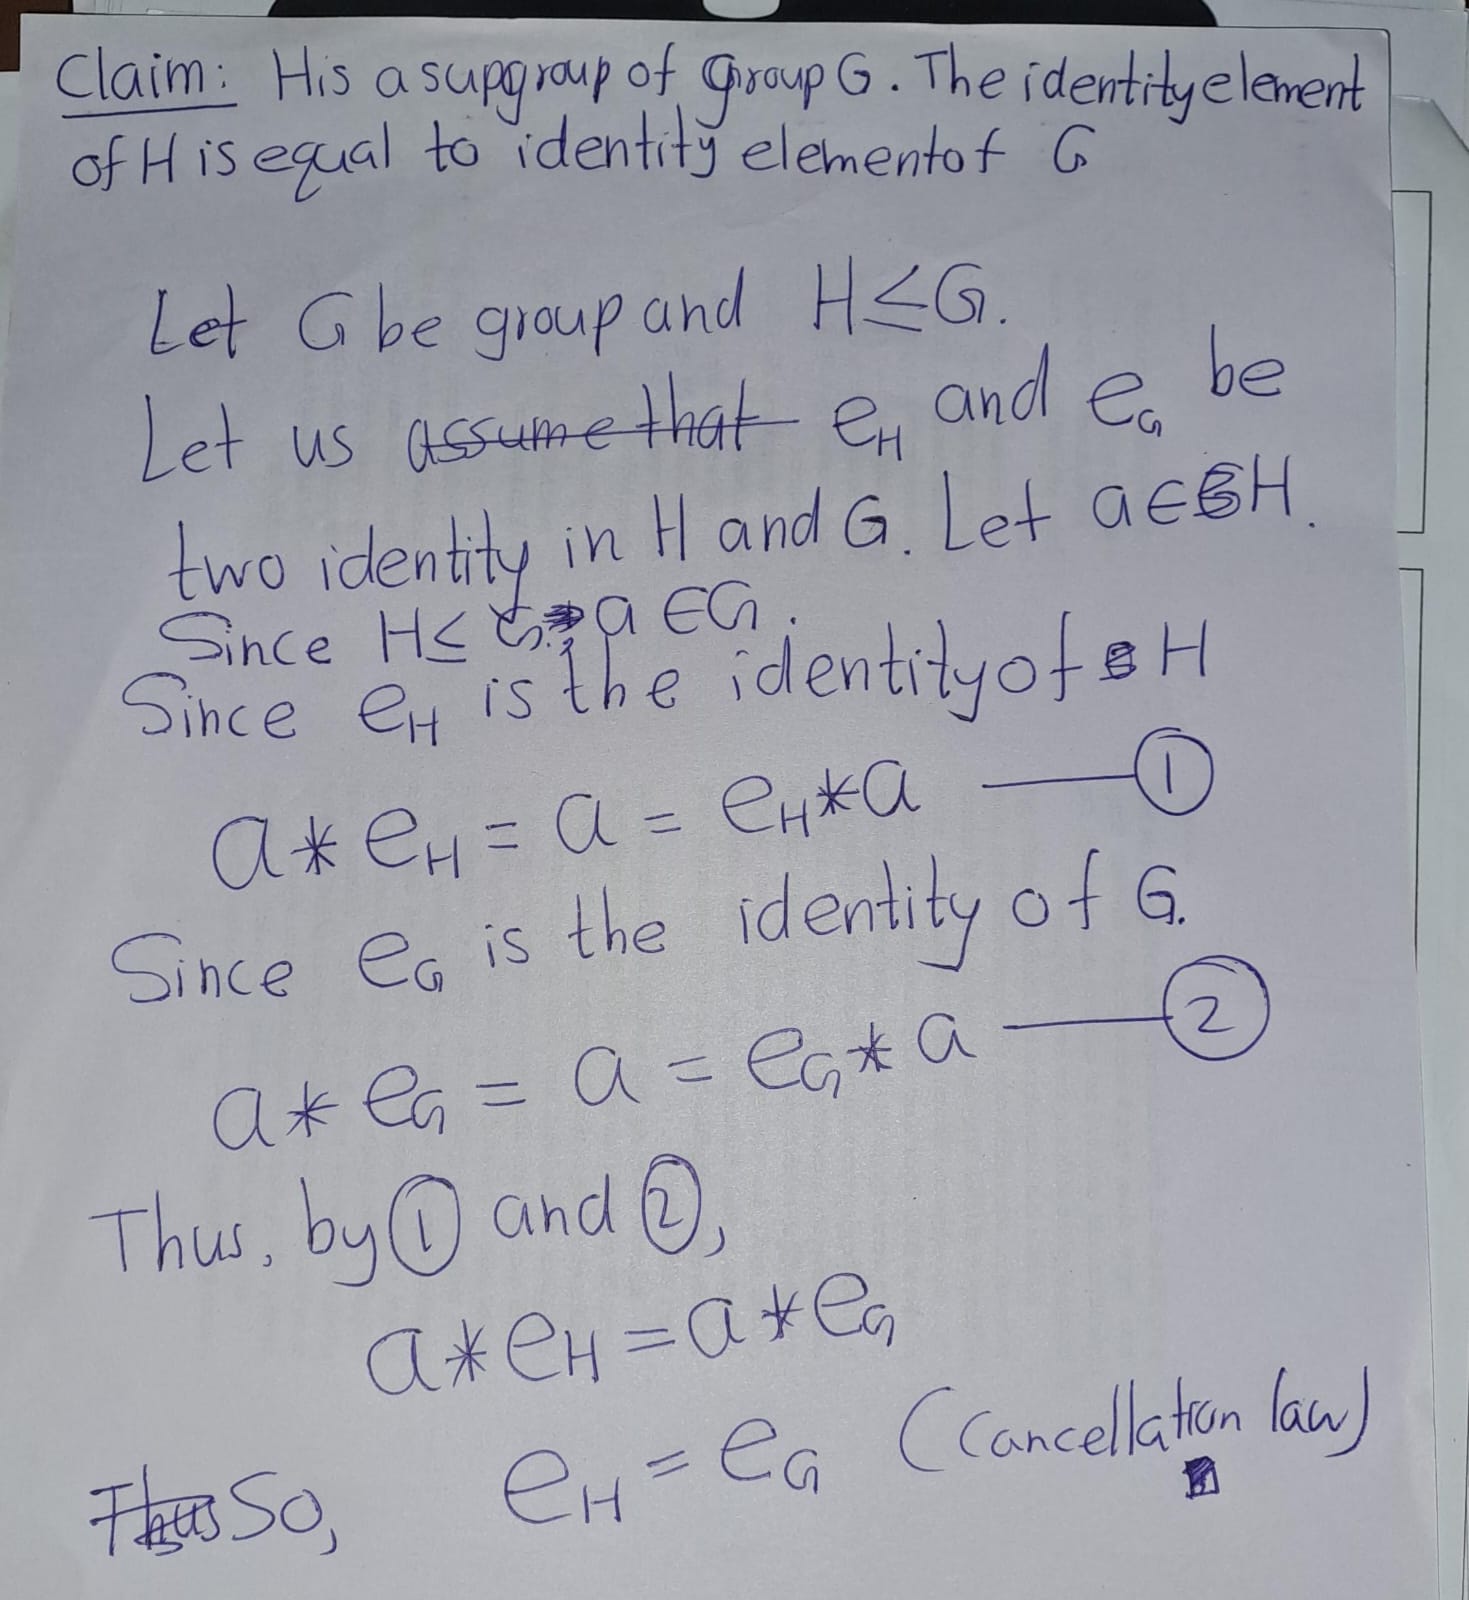 Claim: H is a supgroup of Group G. The identity element
of H is equal to identity element of G
Let G be group and H ≤ G.
Let us assume that e_H and e_G be
two identity in H and G. Let a ∈ H.
Since H ≤ G, a ∈ G.
Since e_H is the identity of H
a * e_H = a = e_H * a — ①
Since e_G is the identity of G.
a * e_G = a = e_G * a — ②
Thus, by ① and ②,
a * e_H = a * e_G
Thus So, e_H = e_G (Cancellation law)